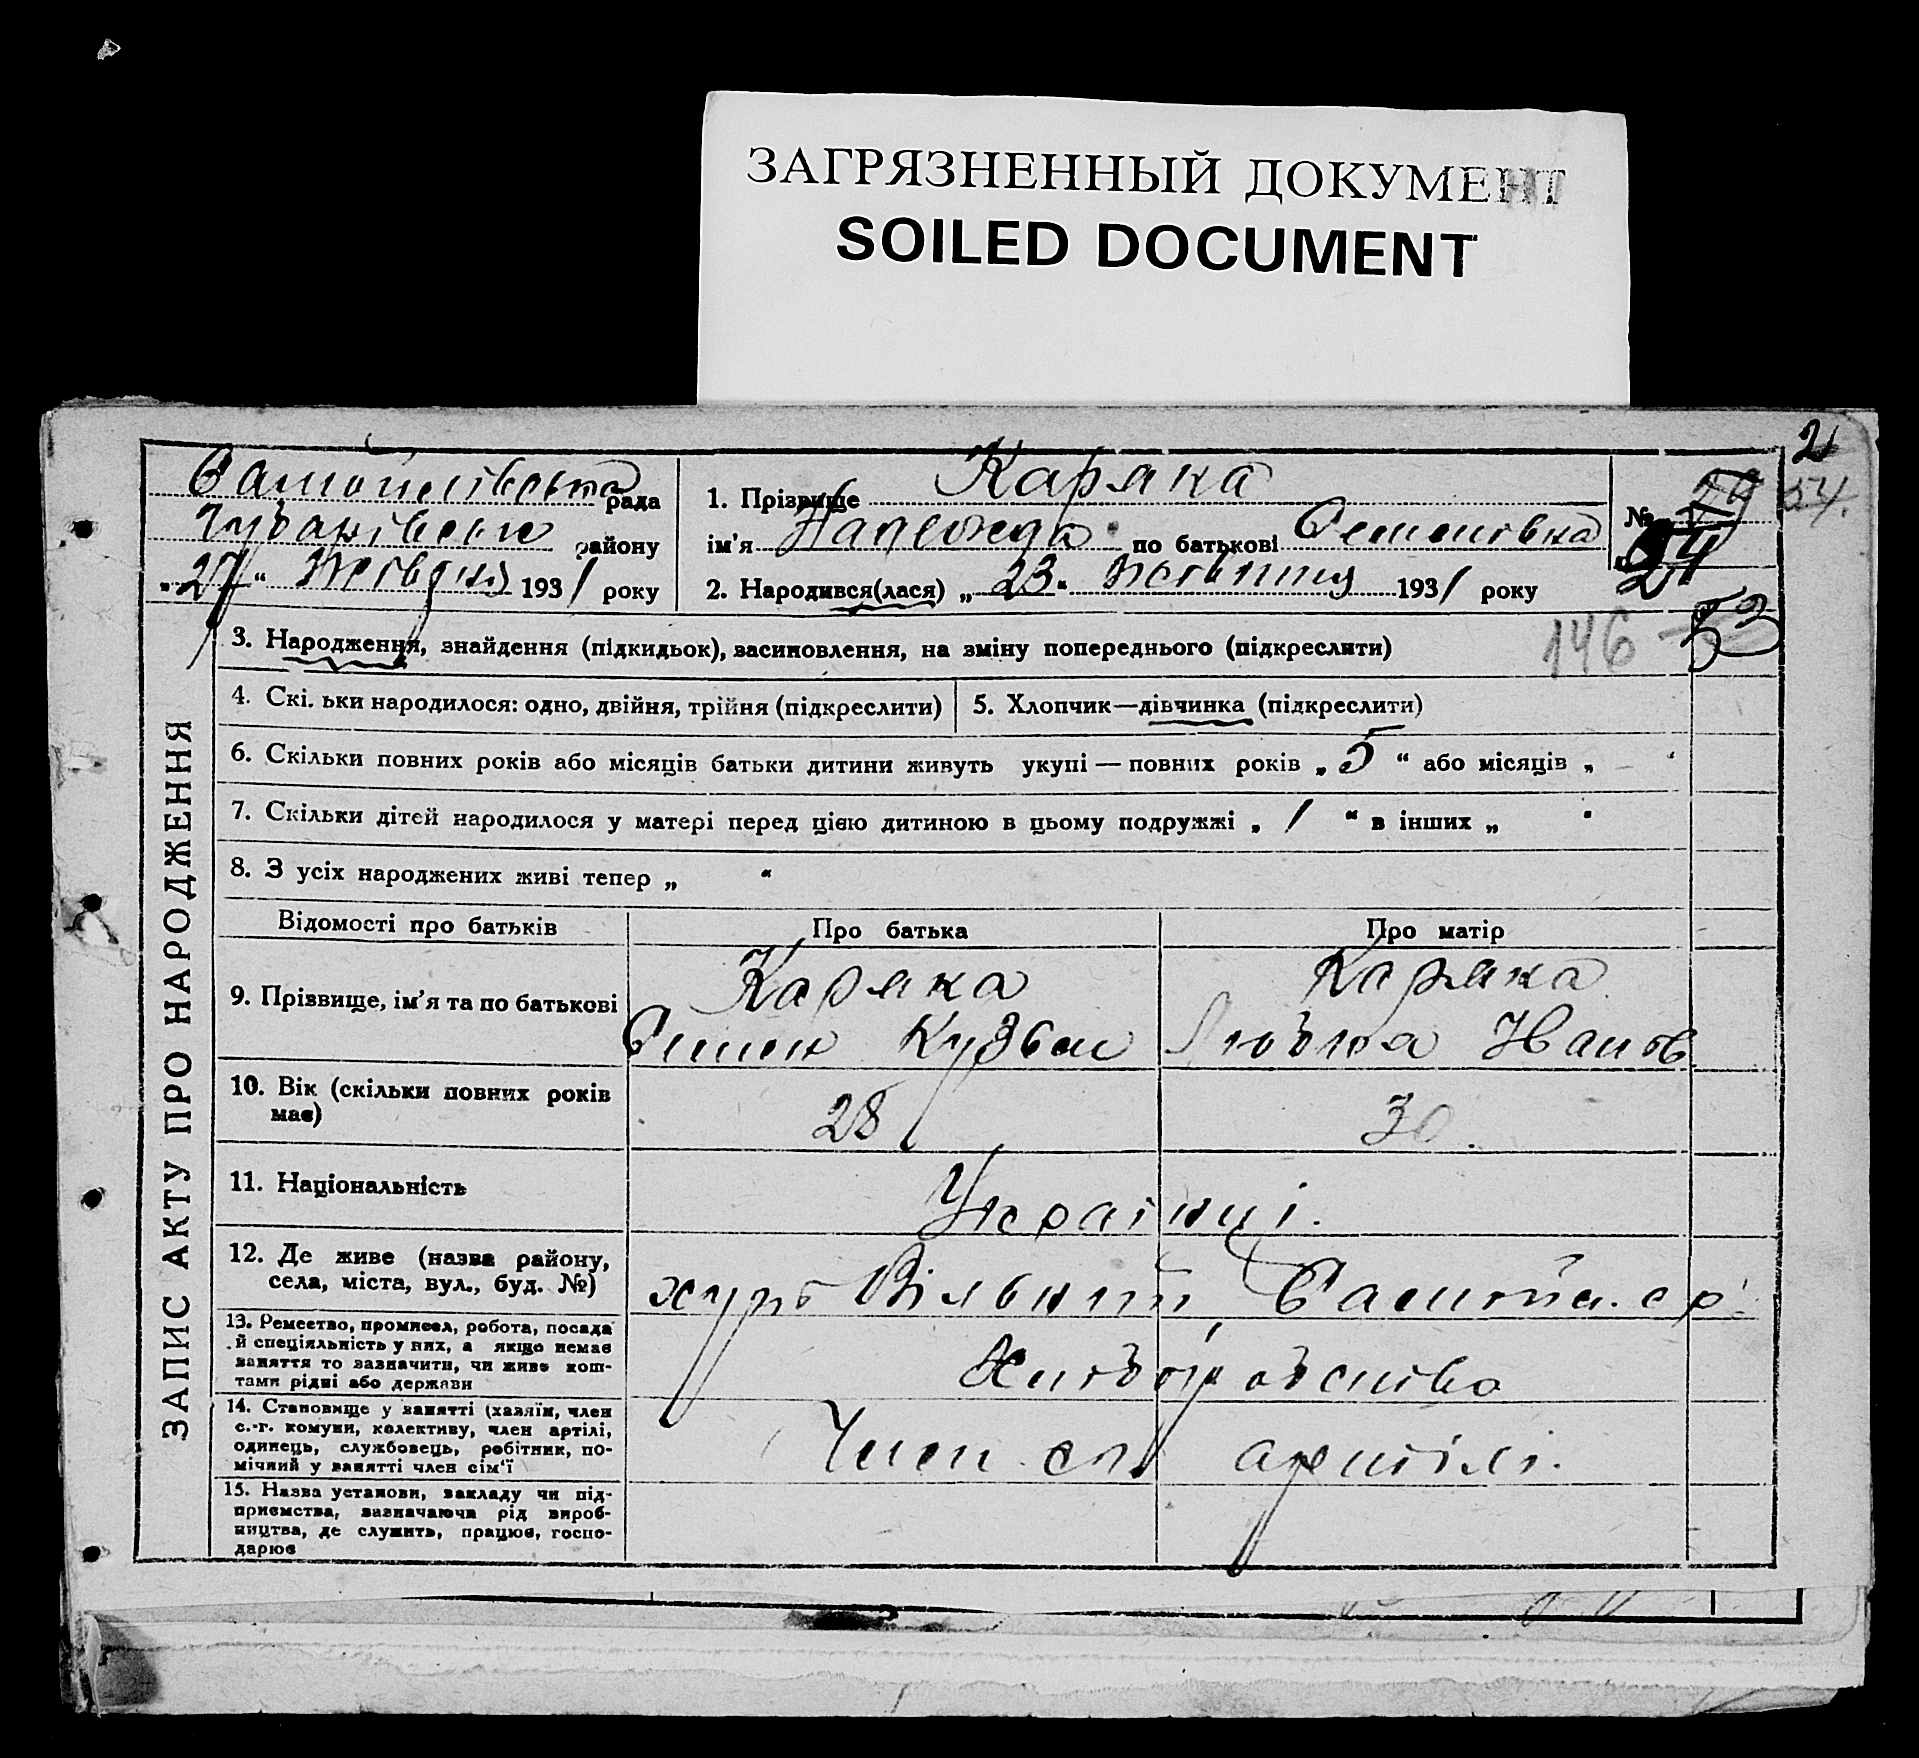 ЗАГРЯЗНЕННЫЙ ДОКУМЕНТ
SOILED DOCUMENT
2
54.
Самойлівська рада
району
„27“ Жовтня 1931 року
1. Прізвище Каряка
ім'я Надежда по батькові Семеновна
2. Народився(лася) „23“ 1931 року
№
24
53
146
ЗАПИС АКТУ ПРО НАРОДЖЕННЯ
3. Народження, знайдення (підкидьок), засиновлення, на зміну попереднього (підкреслити)
4. Скі. ьки народилося: одно, двійня, трійня (підкреслити)
5. Хлопчик—дівчинка (підкреслити)
6. Скільки повних років або місяців батьки дитини живуть укупі — повних років „ 5 “ або місяців „
7. Скільки дітей народилося у матері перед цією дитиною в цьому подружжі „ 1 “ в інших „ “
8. З усіх народжених живі тепер „ “
Відомості про батьків
Про батька
Про матір
9. Прізвище, ім'я та по батькові
Каряка
Семен Кузьм
Каряка
Любов Іванов
10. Вік (скільки повних років має)
28
30.
11. Національність
Українці.
12. Де живе (назва району, села, міста, вул., буд. №)
хут Вільний Самойл. с р
13. Ремество, промисел, робота, посада й спеціяльність у них, а якщо немає заняття то зазначити, чи живе коштами рідні або держави
Хліборобство
14. Становище у занятті (хазяїн, член с.-г. комуни, колективу, член артілі, одинець, службовець, робітник, помічний у занятті член сім'ї
Член с/г артілі.
15. Назва установи, закладу чи підприємства, зазначаючи рід виробництва, де служить, працює, господарює